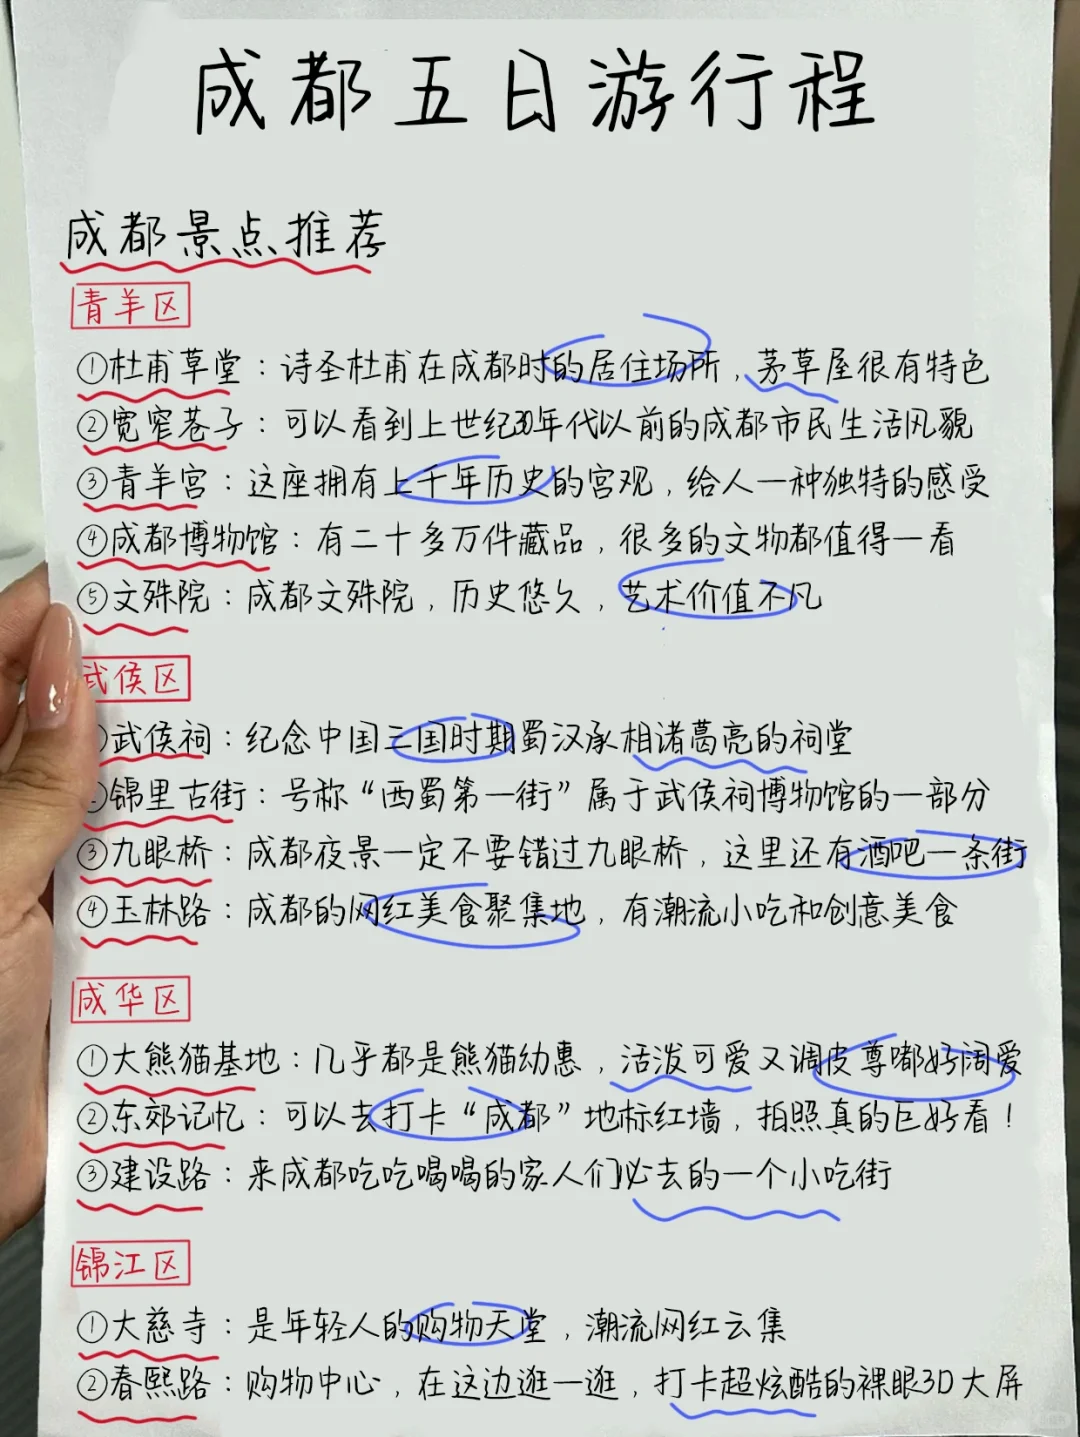 成都五日游行程
成都景点推荐
青羊区
①杜甫草堂：诗圣杜甫在成都时的居住场所，茅草屋很有特色
②宽窄巷子：可以看到上世纪30年代以前的成都市民生活风貌
③青羊宫：这座拥有上千年历史的宫观，给人一种独特的感受
④成都博物馆：有二十多万件藏品，很多的文物都值得一看
⑤文殊院：成都文殊院，历史悠久，艺术价值不凡
武侯区
①武侯祠：纪念中国三国时期蜀汉承相诸葛亮的祠堂
②锦里古街：号称“西蜀第一街”属于武侯祠博物馆的一部分
③九眼桥：成都夜景一定不要错过九眼桥，这里还有酒吧一条街
④玉林路：成都的网红美食聚集地，有潮流小吃和创意美食
成华区
①大熊猫基地：几乎都是熊猫幼惠，活泼可爱又调皮尊嘟好阔爱
②东郊记忆：可以去打卡“成都”地标红墙，拍照真的巨好看！
③建设路：来成都吃吃喝喝的家人们必去的一个小吃街
锦江区
①大慈寺：是年轻人的购物天堂，潮流网红云集
②春熙路：购物中心，在这边逛一逛，打卡超炫酷的裸眼3D大屏